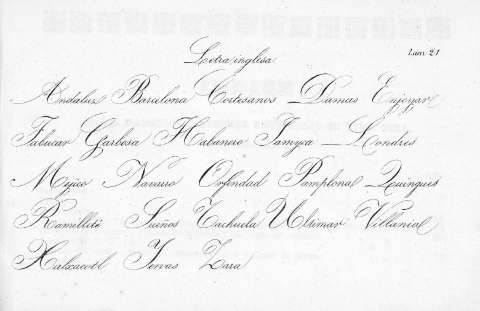 Letra inglesa
Lam 21
Andaluz Barcelona Cortesanos Damas Enjoyar
Fabucar Garbosa Habanero Jamyca Londres
Mejico Navarro Orfindad Pamplona Quingues
Ramillete Sueños Tachuela Ultimar Villanial
Yervas Zara